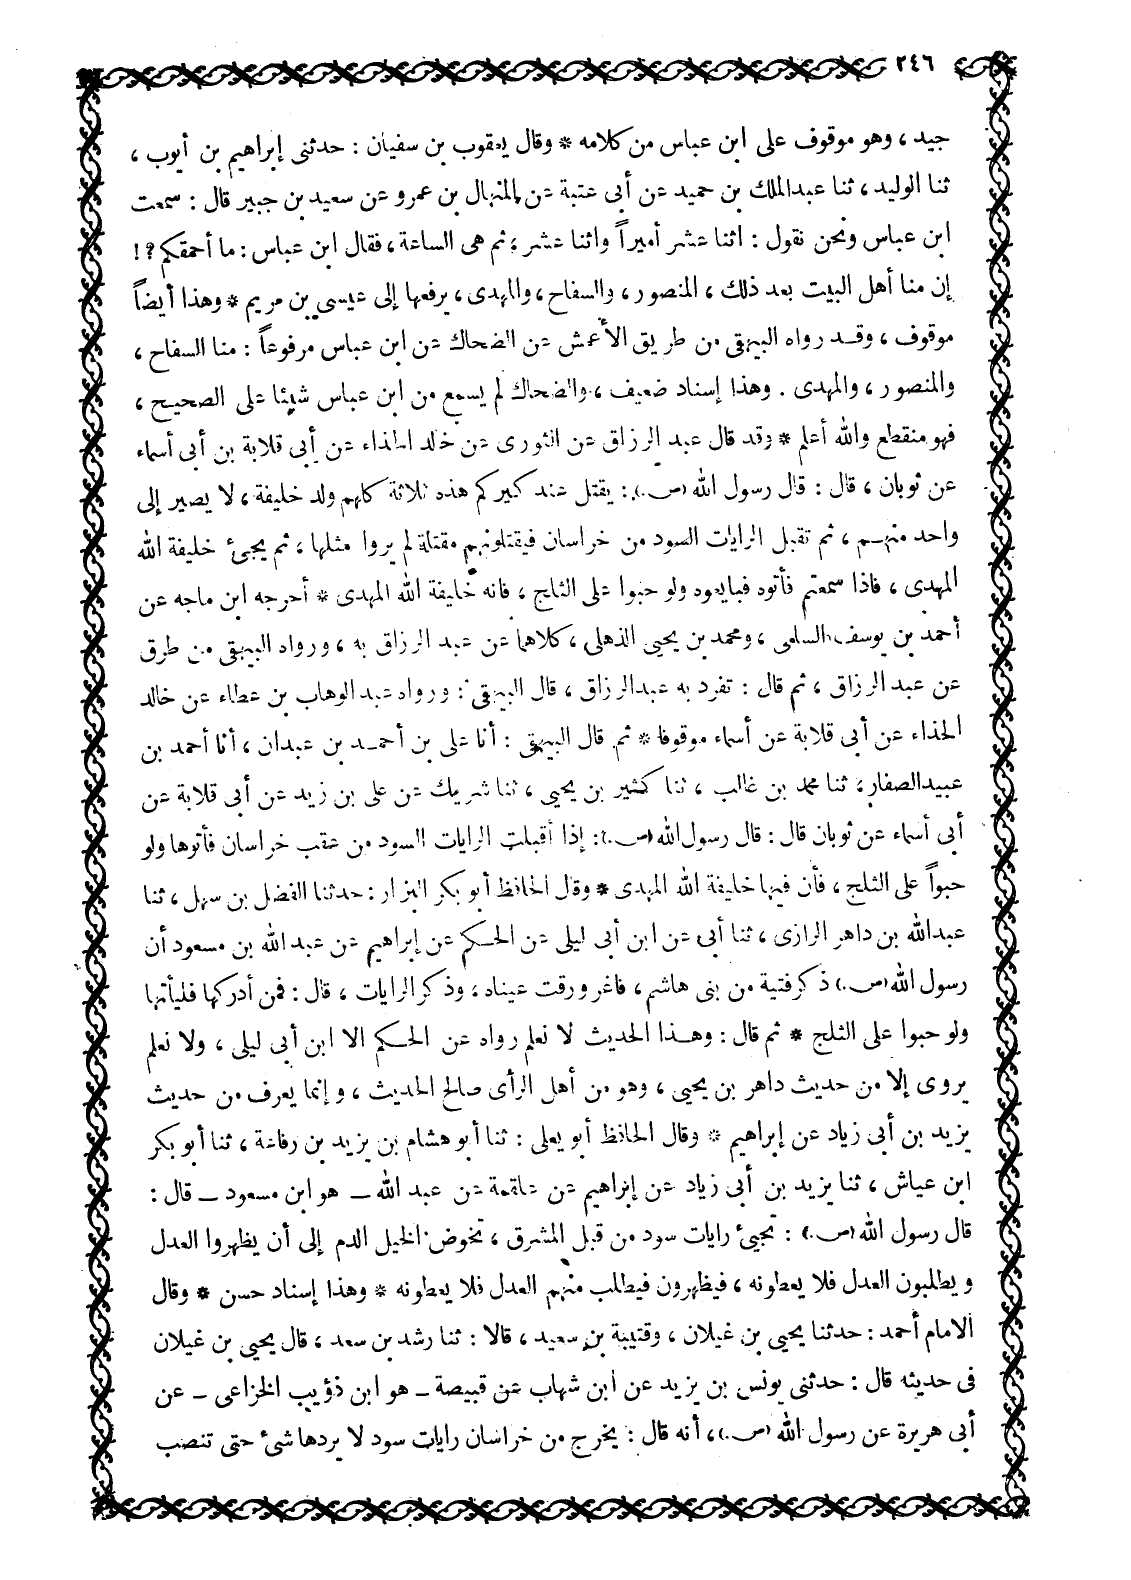 ٢٤٦
جيد ، وهو موقوف على ابن عباس من كلامه * وقال يعقوب بن سفيان : حدثنى إبراهيم بن أيوب ،
ثنا الوليد ، ثنا عبدالملك بن حميد عن أبى عتبة عن المنهال بن عمرو عن سعيد بن جبير قال : سمعت
ابن عباس ونحن نقول : اثنا عشر أميراً واثنا عشر ، ثم هى الساعة ، فقال ابن عباس : ما أحمقكم ؟ !
إن منا أهل البيت بعد ذلك ، المنصور ، والسفاح ، والمهدى ، يرفعها إلى عيسى بن مريم * وهذا أيضاً
موقوف ، وقد رواه البيهقى من طريق الأعمش عن الضحاك عن ابن عباس مرفوعاً : منا السفاح ،
والمنصور ، والمهدى . وهذا إسناد ضعيف ، والضحاك لم يسمع من ابن عباس شيئا على الصحيح ،
فهو منقطع والله أعلم * وقد قال عبد الرزاق عن الثورى عن خالد الحذاء عن أبى قلابة بن أبى أسماء
عن ثوبان ، قال : قال رسول الله (ص.) : يقتل عند كيركم هذه ثلاثة كلهم ولد خليفة ، لا يصير إلى
واحد منهم ، ثم تقبل الرايات السود من خراسان فيقتلونهم مقتلة لم يروا مثلها ، ثم يجئ خليفة الله
المهدى ، فاذا سمعتم فأتوه فبايعوه ولو حبوا على الثلج ، فانه خليفة الله المهدى * أخرجه ابن ماجه عن
أحمد بن يوسف السلمى ، ومحمد بن يحيى الذهلى ، كلاهما عن عبد الرزاق به ، ورواه البيهقى من طرق
عن عبد الرزاق ، ثم قال : تفرد به عبدالرزاق ، قال البيهقى : ورواه عبد الوهاب بن عطاء عن خالد
الحذاء عن أبى قلابة عن أسماء موقوفا * ثم قال البيهقى : أنا على بن أحمد بن عبدان ، أنا أحمد بن
عبيد الصفار ، ثنا محمد بن غالب ، ثنا كثير بن يحيى ، ثنا شريك عن على بن زيد عن أبى قلابة عن
أبى أسماء عن ثوبان قال : قال رسول الله (ص.) : إذا أقبلت الرايات السود من عقب خراسان فأتوها ولو
حبواً على الثلج ، فأن فيها خليفة الله المهدى * وقال الحافظ أبو بكر البزار : حدثنا الفضل بن سهل ، ثنا
عبدالله بن داهر الرازى ، ثنا أبى عن ابن أبى ليلى عن الحكم عن إبراهيم عن عبد الله بن مسعود أن
رسول الله (ص.) ذكر فتية من بنى هاشم ، فاغرورقت عيناه ، وذكر الرايات ، قال : فمن أدركها فليأتها
ولو حبوا على الثلج * ثم قال : وهذا الحديث لا نعلم رواه عن الحكم الا ابن أبى ليلى ، ولا نعلم
يروى إلا من حديث داهر بن يحيى ، وهو من أهل الرأى صالح الحديث ، وإنما يعرف من حديث
يزيد بن أبى زياد عن إبراهيم * وقال الحافظ أبو يعلى : ثنا أبو هشام بن يزيد بن رفاعة ، ثنا أبو بكر
ابن عياش ، ثنا يزيد بن أبى زياد عن إبراهيم عن علقمة عن عبد الله – هو ابن مسعود – قال :
قال رسول الله (ص.) : تجيئ رايات سود من قبل المشرق ، تخوض الخيل الدم إلى أن يظهروا العدل
ويطلبون العدل فلا يعطونه ، فيظهرون فيطلب منهم العدل فلا يعطونه * وهذا إسناد حسن * وقال
الامام أحمد : حدثنا يحيى بن غيلان ، وقتيبة بن سعيد ، قالا : ثنا رشد بن سعد ، قال يحيى بن غيلان
فى حديثه قال : حدثنى يونس بن يزيد عن ابن شهاب عن قبيصة – هو ابن ذؤيب الخزاعى – عن
أبى هريرة عن رسول الله (ص.) ، أنه قال : يخرج من خراسان رايات سود لا يردها شئ حتى تنصب